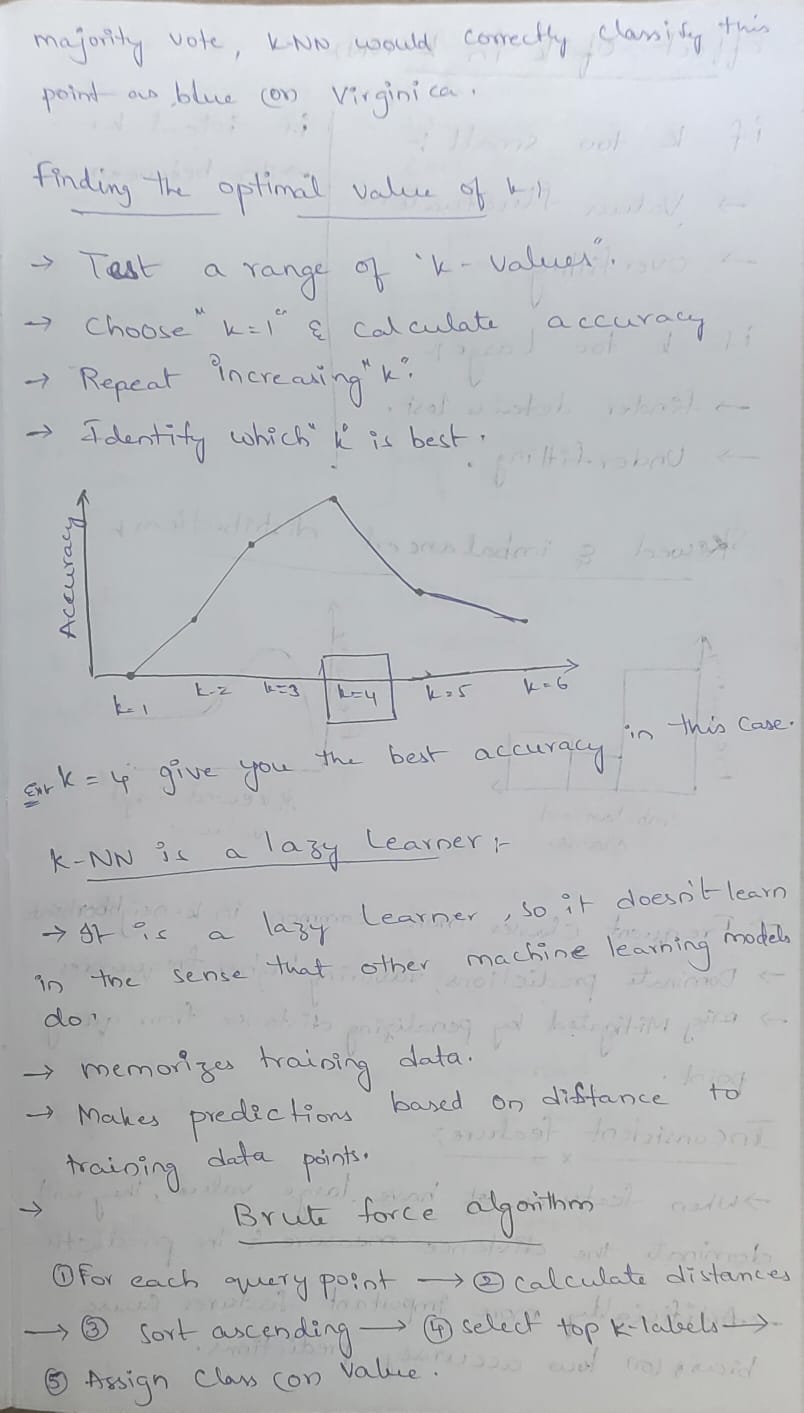 majority vote, K-NN would correctly classify this
point as blue (or) Virginica.
Finding the optimal value of k :)
→ Test a range of "k - values".
→ Choose "k=1" & calculate accuracy
→ Repeat increasing "k".
→ Identify which "k" is best.
Accuracy
k=1 k=2 k=3 k=4 k=5 k=6
k = 4 give you the best accuracy in this case.
K-NN is a lazy Learner :-
→ It is a lazy Learner, so it doesn't learn
in the sense that other machine learning models
do.
→ memorizes training data.
→ Makes predictions based on distance to
training data points.
→ Brute force algorithm
① For each query point → ② calculate distances
→ ③ sort ascending → ④ select top k-labels →
⑤ Assign Class (or) Value.